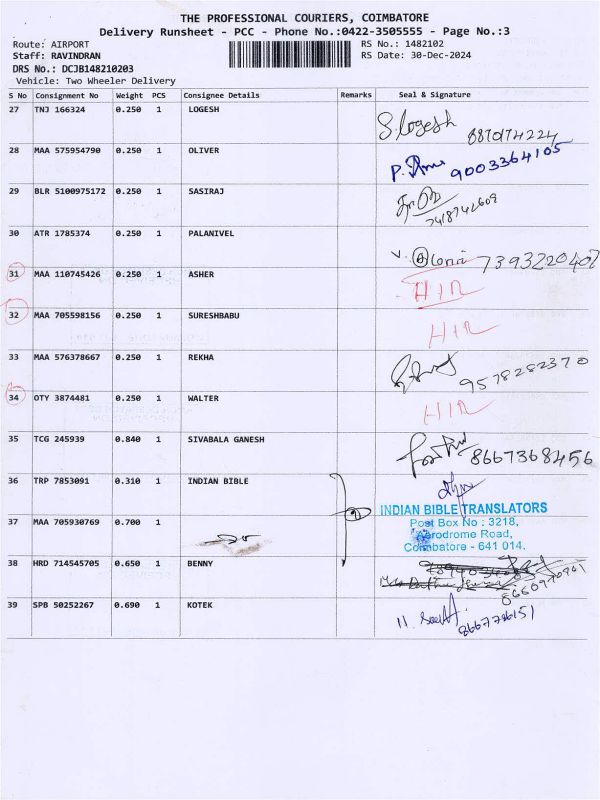 THE PROFESSIONAL COURIERS, COIMBATORE
Delivery Runsheet - PCC - Phone No.:0422-3505555 - Page No.:3
Route: AIRPORT RS No.: 1482102
Staff: RAVINDRAN RS Date: 30-Dec-2024
DRS No.: DCJB148210203
Vehicle: Two Wheeler Delivery
S No Consignment No Weight PCS Consignee Details Remarks Seal & Signature
27 TNJ 166324 0.250 1 LOGESH S. Logesh 8870174224
28 MAA 575954790 0.250 1 OLIVER 9003364105
29 BLR 5100975172 0.250 1 SASIRAJ 7418742609
30 ATR 1785374 0.250 1 PALANIVEL 7393220407
31 MAA 110745426 0.250 1 ASHER HIR
32 MAA 705598156 0.250 1 SURESHBABU HIR
33 MAA 576378667 0.250 1 REKHA 9578282370
34 OTY 3874481 0.250 1 WALTER HIR
35 TCG 245939 0.840 1 SIVABALA GANESH 8667368456
36 TRP 7853091 0.310 1 INDIAN BIBLE
INDIAN BIBLE TRANSLATORS
Post Box No : 3218,
37 MAA 705930769 0.700 1
Aerodrome Road,
Coimbatore - 641 014.
38 HRD 714545705 0.650 1 BENNY
39 SPB 50252267 0.690 1 KOTEK